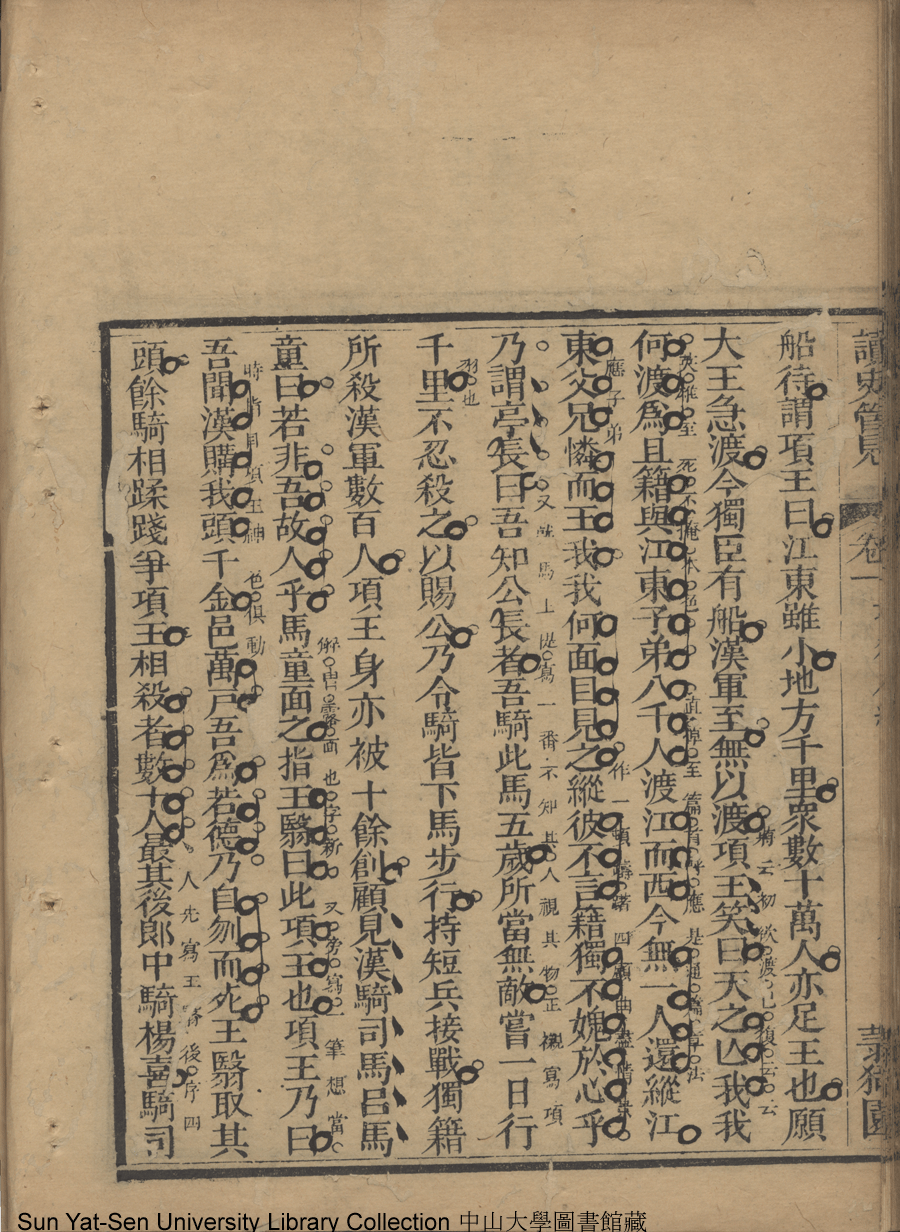 讀史管見 卷一
船待謂項王曰江東雖小地方千里衆數十萬人亦足王也願
大王急渡今獨臣有船漢軍至無以渡項王笑曰天之亾我我
何渡爲且籍與江東子弟八千人渡江而西今無一人還縱江
東父兄憐而王我我何面目見之縱彼不言籍獨不媿於心乎
應子弟
乃謂亭長曰吾知公長者吾騎此馬五歲所當無敵嘗一日行
又 馬上 寫一番不知其人視其物正 寫項
羽也
千里不忍殺之以賜公乃令騎皆下馬步行持短兵接戰獨籍
所殺漢軍數百人項王身亦被十餘創顧見漢騎司馬呂馬
童曰若非吾故人乎馬童面之指王翳曰此項王也項王乃曰
面 也字新 又 寫一筆想當
時 項王神色俱動
吾聞漢購我頭千金邑萬戶吾爲若德乃自刎而死王翳取其
頭餘騎相蹂踐爭項王相殺者數十人最其後郎中騎楊喜騎司
人先寫王 後序四
Sun Yat-Sen University Library Collection 中山大學圖書館藏